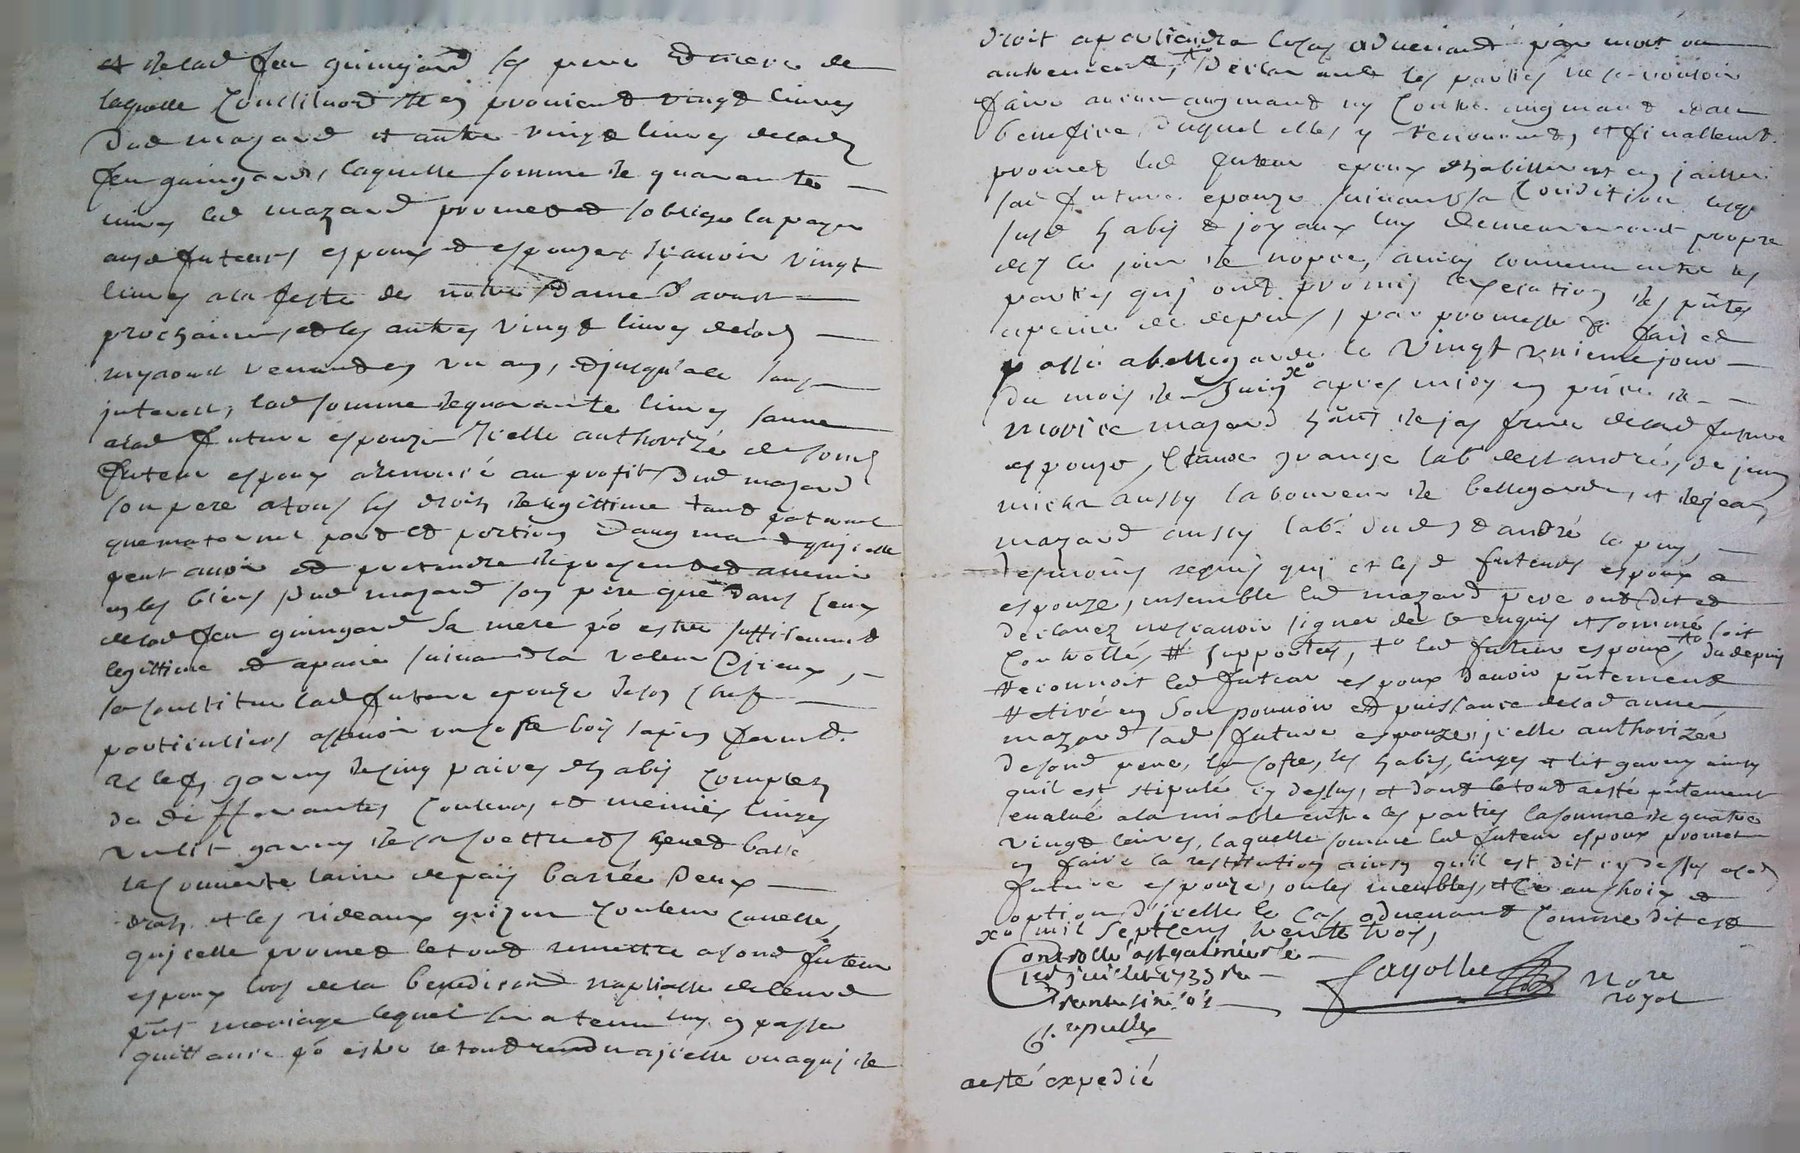 et de lad feu guinjard ses pere et mere de
laquelle constitution il en provient vingt livres
dud mazard et autre vingt livres de lad
feu guingard, laquelle somme de quarante
livres led mazard promet et soblige la payer
ausd futeurs espoux et espouze sçavoir vingt
livres a la feste de notre Dame d'avust
prochaine et les autres vingt livres de lad
venant en un an, et jusqu'alle sans
interest, lad somme de quarante livres
a lad future espouze icelle authorizé de sond
futeur espoux a renoncé au profit dud mazard
son pere a tous les droits de legittime tant paternel
que maternel part et portion d'augmand qu'icelle
peut avoir et pretendre de present et avenir
en les biens dud mazard son pere que dans ceux
de lad feu guingard sa mere po estre suffisamment
legittimé et apanée suivant la valeur d'iceux,
se constitue lad future epouze de son chef
particuliers assavoir un cofre bois sapin fermé
a clef, garny de cinq paires d'habis complets
de differantes couleurs et meinuës linges
un lit garny de
sa couverte laine de païs barrée deux
draps et les rideaux couleur canelle,
qu'icelle promet le tout remettre a sond futeur
espoux lors de la benediction nuptialle de leurd
pñt mariage lequel sera tenu luy en passer
quittance po estre le tout rendu a icelle ou a qui de
droit apartiendra le cas advenant par mort ou
autrement, declarant les parties ne vouloir
faire aucun augmant ny contre augmant au
benefice duquel elles y renoncent, et finallement
promet led futeur epoux d'habiller et enjailler
sad future epouze suivant sa condition
lesd habis et joyaux luy demeureront propre
dez le jour de nopce, ainsy convenu entre les
parties qui ont promis l'execution des pñtes
a peine de depens, par promesse &c fait et
passé a bellegarde le vingt unieme jour
du mois de Juin xo apres midy en pñce de
morice mazard de jas frere de lad future
espouze, Claude grange labr de st andré, de jean
micha aussy laboureur de bellegarde, et de jean
mazard aussy labr dud st andré le puy,
tesmoins requis qui et lesd futeurs espoux et
espouze, ensemble led mazard pere ont dit et
declarez ne sçavoir signer de ce enquis et sommé soit
controllé, # supportés, to led futeur espoux, to du depuis
reconnoit led futeur espoux d'avoir pñtement
retiré en son pouvoir et puissance de lad anne
mazard sad future espouze, icelle authorizée
de sond pere, le cofre, les habis, linges et lit garny ainsy
qu'il est stipulé cy dessus, et dont le tout a esté pñtement
evalué a lamiable entre les parties la somme de quatre
vingt livres, laquelle somme led futeur espoux promet
en faire la restitution ainsy qu'il est dit cy dessus a lad
future espouze, ou les meubles, et ce au choix et
option d'icelle le cas advenant comme dit est
xo mil sept cens trente trois,
Controllé a st galmier le
1er juillet 1733 Re
trente six s
fayolle Nore
royal
a esté expedié